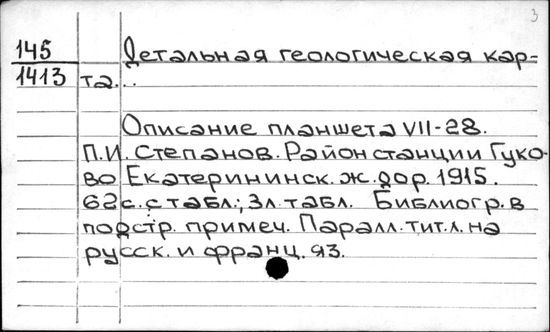 3
145 Детальная геологическая кар-
1413 та...
Описание планшета VII-28.
П.И. Степанов. Район станции Гуко-
во Екатерининск. ж. дор. 1915.
62 с. с табл.; 3 л. табл. Библиогр. в
подстр. примеч. Паралл. тит. л. на
русск. и франц. яз.